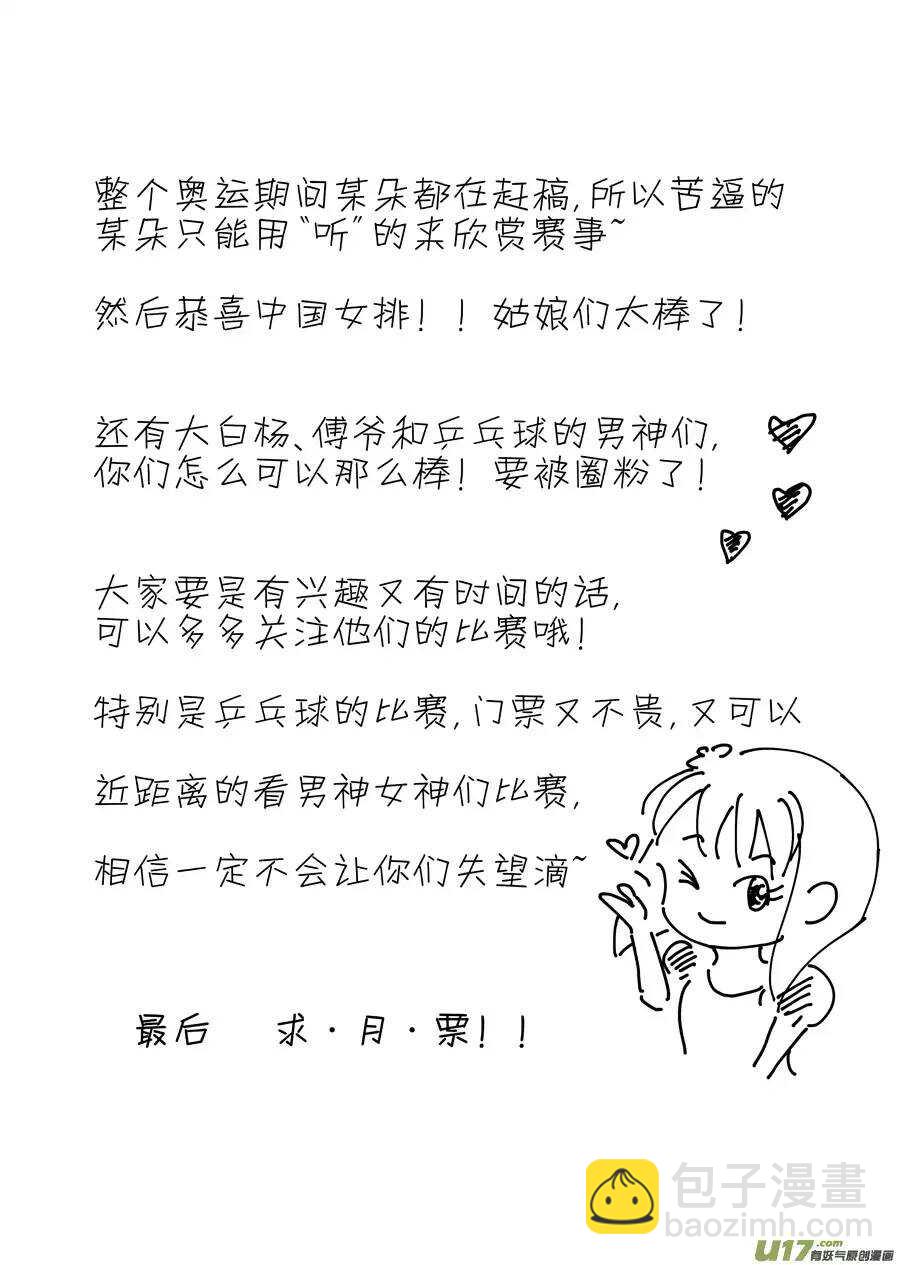 整个奥运期间某朵都在赶稿,所以苦逼的
某朵只能用“听”的来欣赏赛事~
然后恭喜中国女排!!姑娘们太棒了!
还有大白杨、傅爷和乒乓球的男神们,
你们怎么可以那么棒!要被圈粉了!
大家要是有兴趣又有时间的话,
可以多多关注他们的比赛哦!
特别是乒乓球的比赛,门票又不贵,又可以
近距离的看男神女神们比赛,
相信一定不会让你们失望滴~
最后 求·月·票!!
包子漫畫
baozimh.com
U17.com
有妖气原创漫画